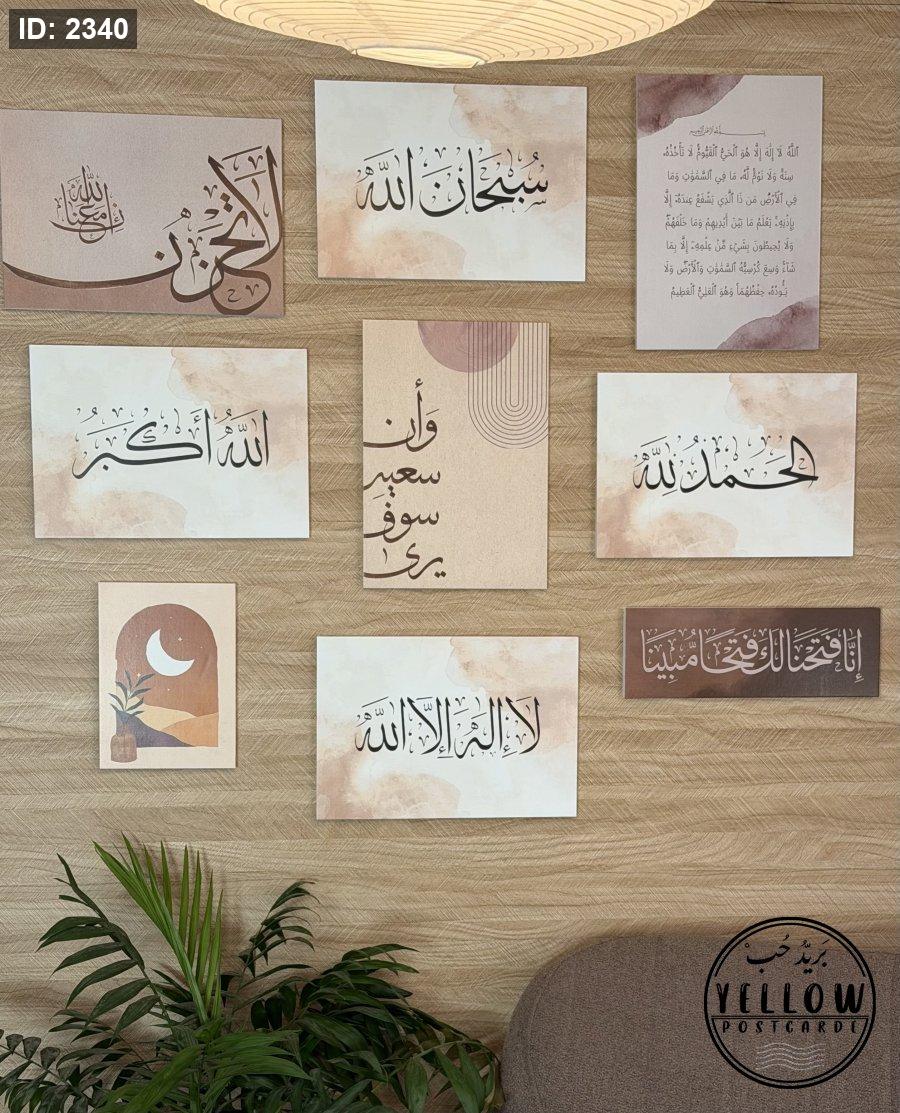 ID: 2340
لا تحزن
إن الله معنا
سُبْحَانَ اللَّه
اللَّهُ لَا إِلَٰهَ إِلَّا هُوَ الْحَيُّ الْقَيُّومُ لَا تَأْخُذُهُ
سِنَةٌ وَلَا نَوْمٌ لَّهُ مَا فِي السَّمَٰوَٰتِ وَمَا
فِي الْأَرْضِ مَن ذَا الَّذِي يَشْفَعُ عِندَهُ إِلَّا
بِإِذْنِهِ يَعْلَمُ مَا بَيْنَ أَيْدِيهِمْ وَمَا خَلْفَهُمْ
وَلَا يُحِيطُونَ بِشَيْءٍ مِّنْ عِلْمِهِ إِلَّا بِمَا
شَاءَ وَسِعَ كُرْسِيُّهُ السَّمَٰوَٰتِ وَالْأَرْضَ وَلَا
يَئُودُهُ حِفْظُهُمَا وَهُوَ الْعَلِيُّ الْعَظِيمُ
اللَّهُ أَكْبَرُ
وَأن
سعيه
سوفَ
يرى
الحَمْدُ لِلَّه
لَا إِلَهَ إِلَّا اللَّه
إِنَّا فَتَحْنَا لَكَ فَتْحًا مُّبِينًا
بَرِيدُ حُبْ
YELLOW
POSTCARDE